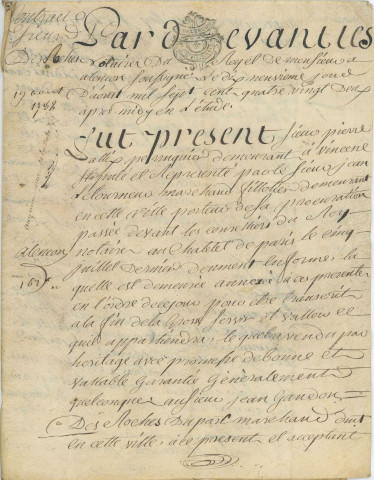 Contract
Pardevant Les
Notaires Du Roy et de monsieur a
alencon soussigné le dix neuvieme jour
D'aout mil sept cent quatre vingt deux
apres midy en L'étude.
19 aout
Fut present Sieur pierre
perruquier demeurant à Vincenne
Representé par le Sieur jean
Letourneur marchand demeurant
en cette ville porteur de sa procuration
passée devant les conseillers du Roy
notaires au Chatelet de paris le cinq
juillet dernier duement en forme, la
quelle est demeurée annexée a ces presentes
en l'ordre de ce jour pour être transcrit
a la fin de la Grosse
quil appartiendra; lequel a vendu par
heritage avec promesse de bonne et
vallable Garantie Generalement
quelconque au Sieur jean Gandon
Des Roches Duparc marchand
en cette ville, a ce present et acceptant
alencon